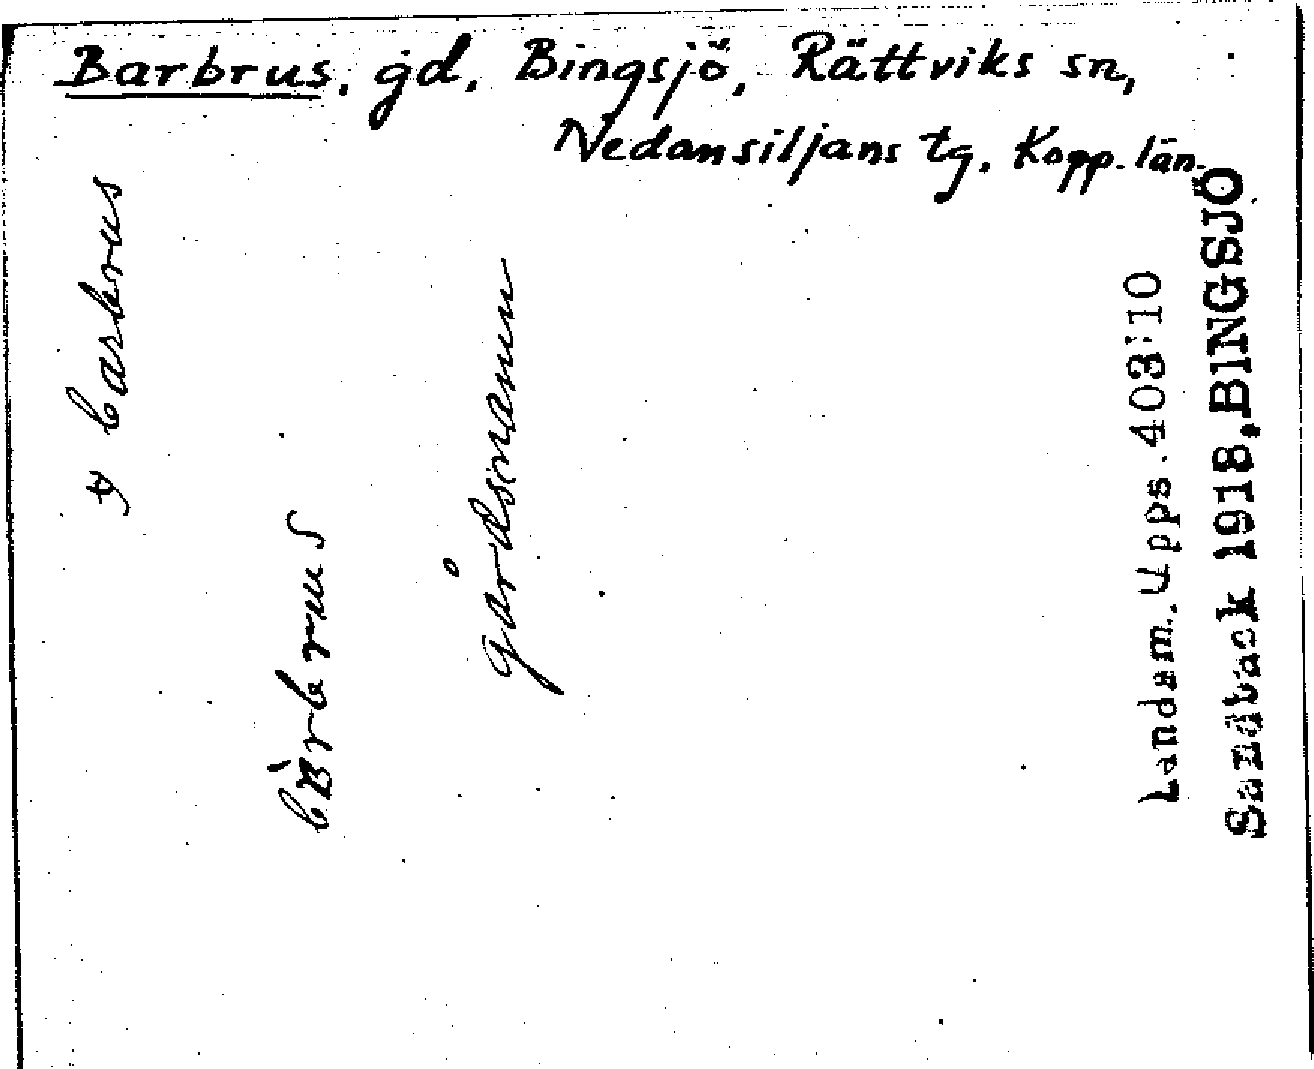 Barbrus, gd, Bingsjö, Rättviks sn,
Nedansiljans tg. Kopp. län.
barbrus
bàrbrus
gårdsnamn
Landsm. Upps. 403:10
Sandback 1918, BINGSJÖ